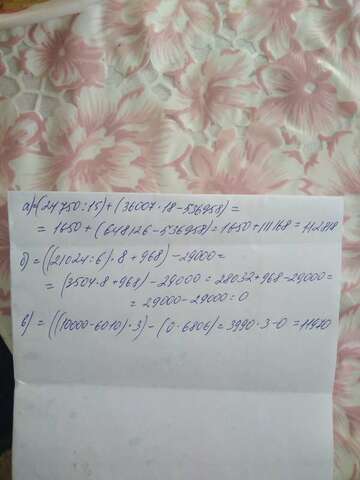 а) (24750:15)+(36007·18-536958)=
= 1650+(648126-536958)=1650+111168=112818
б) = ((21024:6)·8+968)-29000=
= (3504·8+968)-29000=28032+968-29000=
= 29000-29000=0
в) = ((10000-6010)·3)-(0·6806)=3990·3-0=11970